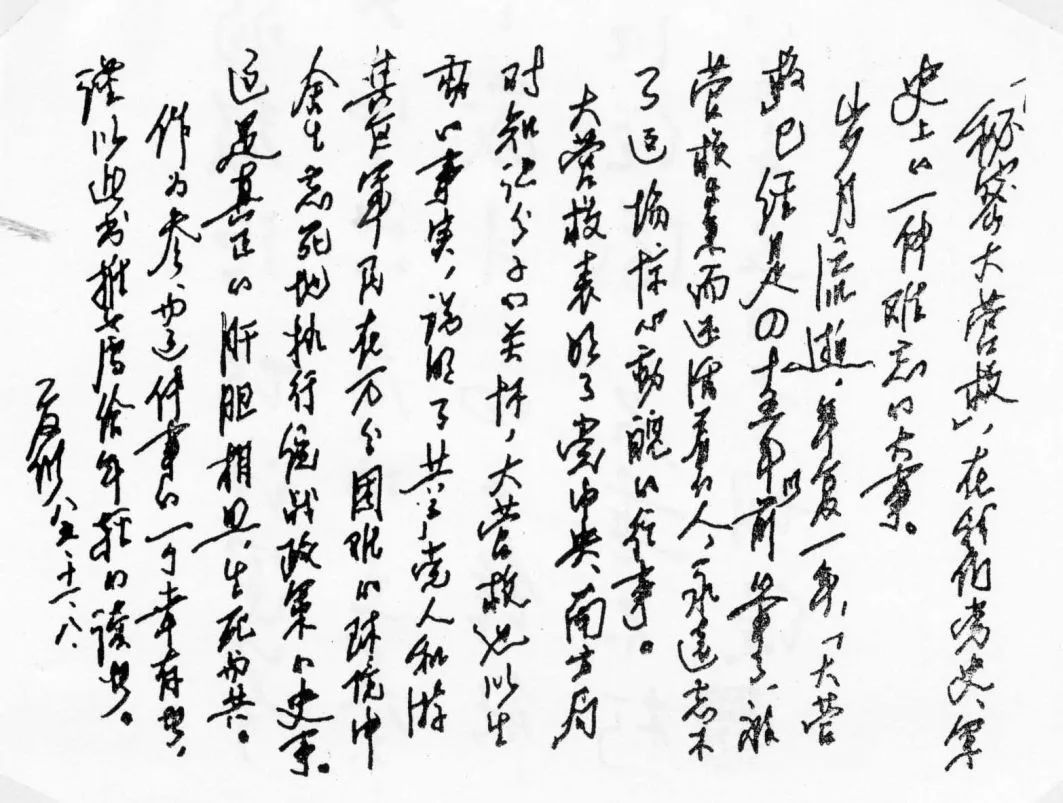 《秘密大营救》,在我们党史、军
史上的一件难忘的大事。
岁月流逝,年复一年,“大营
救”已经是四十多年前的事了,被
营救出来而还活着的人,永远忘不
了这场惊心动魄的往事。
大营救表明了党中央、南方局
对知识分子的关怀,大营救也以生
动的事实,说明了共产党人和游
击区军民在万分困难的环境中
舍生忘死地执行统战政策的史事。
这是真正的肝胆相照,生死与共。
作为参与这件事的一个幸存者,
谨以此书推荐给年轻的读者。
夏衍 八五、十一、八、